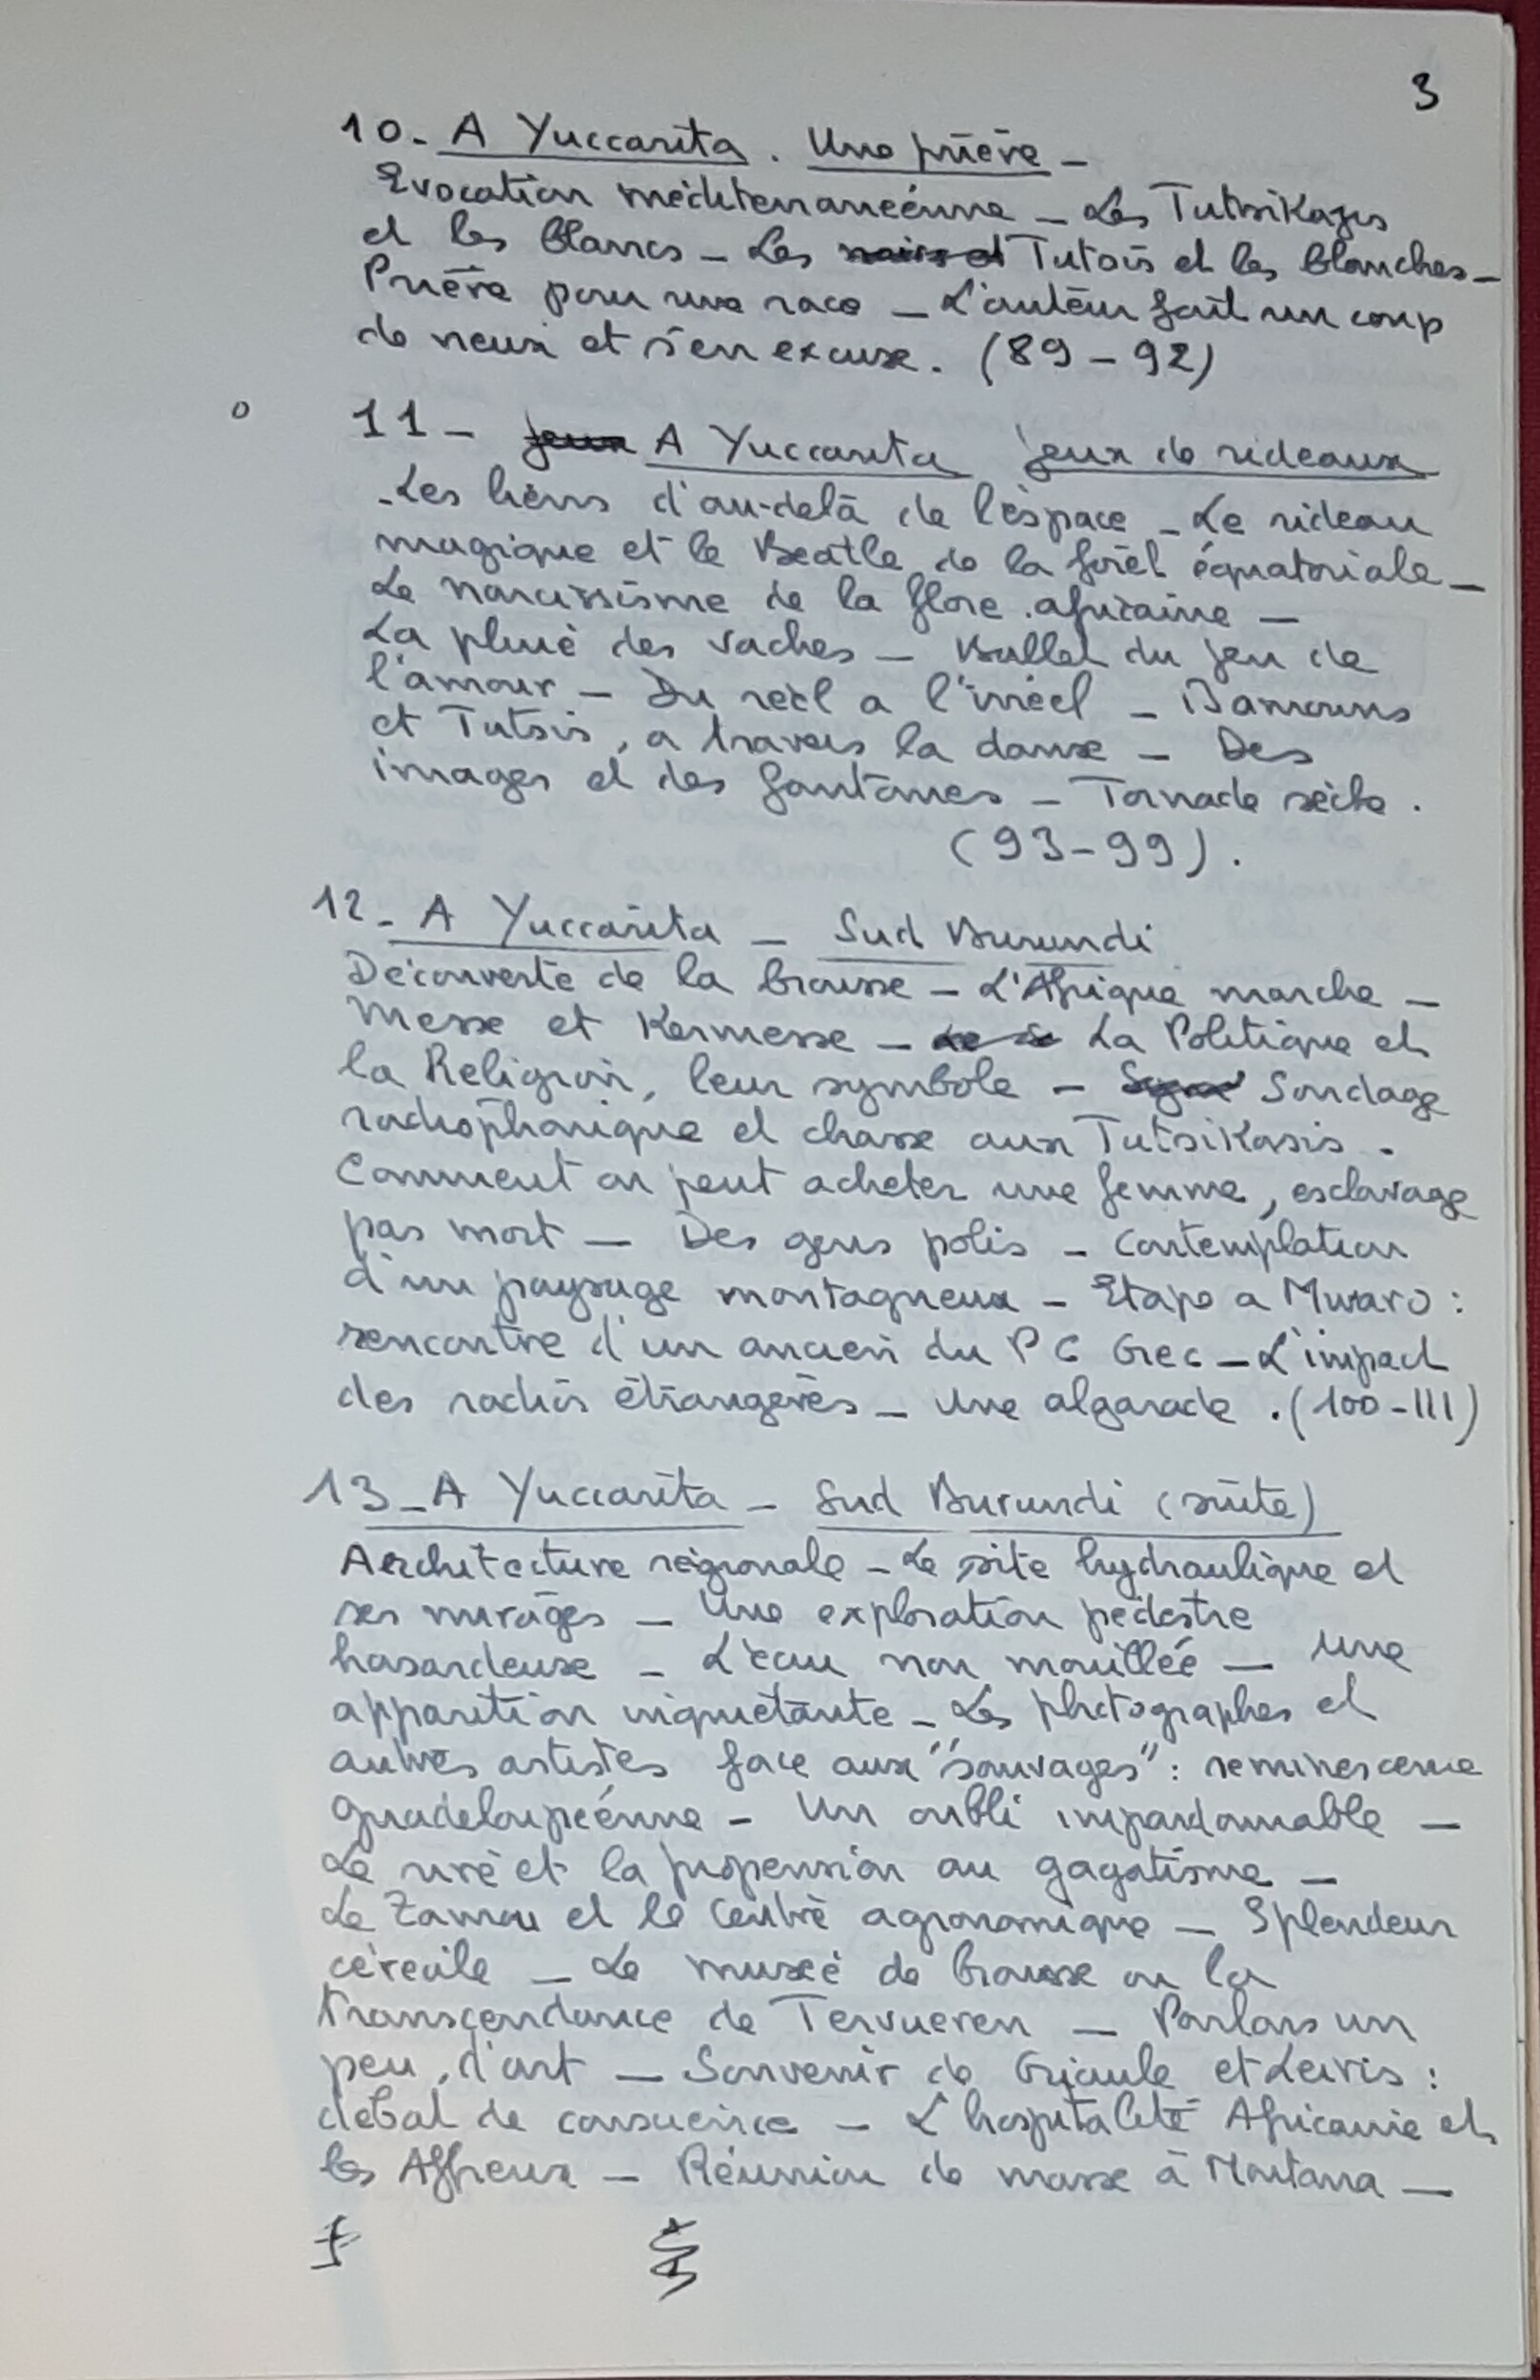 3
10- A Yuccarita. Une prière -
Evocation méditerranéenne - Les Tutsikazis
et les blancs - Les noirs et Tutsis et les blanches -
Prière pour une race - L'auteur fait un coup
de neuX et s'en excuse. (89-92)
o 11- jeux A Yuccarita jeux de rideaux
-Les liens d'au-delà de l'espace - Le rideau
magique et le Beatle de la forêt équatoriale -
Le narcissisme de la flore africaine -
La pluie des vaches - Ballet du jeu de
l'amour - Du réel a l'irréel - Bamouns
et Tutsis, a travers la danse - Des
images et des fantômes - Tornade sèche.
(93-99).
12- A Yuccarita - Sud Burundi
Découverte de la brousse - L'Afrique marche -
Messe et Kermesse - La Politique et
la Religion, leur symbole - Sondage
radiophonique et chasse aux Tutsikasis -
Comment on peut acheter une femme, esclavage
pas mort - Des gens polis - Contemplation
d'un paysage montagneux - Etape a Muraro :
rencontre d'un ancien du PC Grec - L'impact
des radios étrangères - Une algarade. (100-111)
13- A Yuccarita - Sud Burundi (suite)
Architecture régionale - Le site hydraulique et
ses mirages - Une exploration pédestre
hasardeuse - L'eau non mouillée - Une
apparition inquiétante - Les photographes et
autres artistes face aux "sauvages" : reminescence
guadeloupéenne - Un oubli impardonnable -
Le rire et la propension au gagatisme -
Le Zamou et le Centre agronomique - Splendeur
céréale - Le musée de brousse ou la
transcendance de Tervueren - Parlons un
peu d'art - Souvenir de Griaule et Leiris :
débat de conscience - L'hospitalité Africaine et
les Affreux - Réunion de masse à Montana -